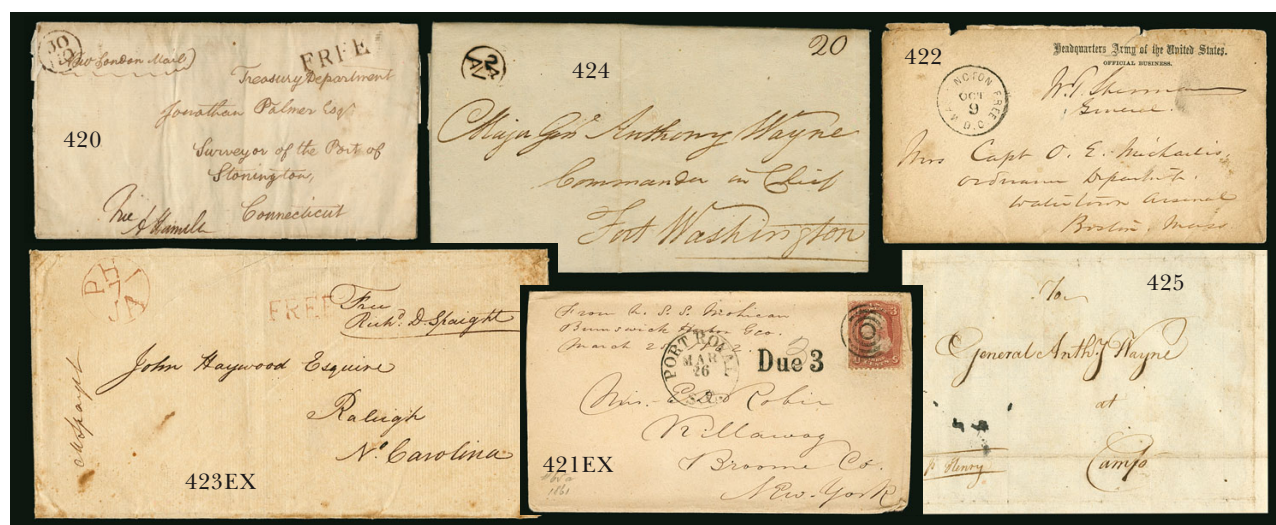 30
New London Mail
FREE
Treasury Department
Jonathan Palmer Esqr
Surveyor of the Port of
Stonington,
Connecticut
420
24
AV
424
20
Major Genl Anthony Wayne
Commander in Chief
Fort Washington
422
Headquarters Army of the United States.
OFFICIAL BUSINESS.
W. T. Sherman
General.
OCT
9
FREE
Mrs Capt O. E. Michaelis,
Ordnance Department.
Watertown Arsenal
Boston, Mass
PH
JA
FREE
Free
Richd. D. Spaight
John Haywood Esquire
Raleigh
No. Carolina
423EX
From U. S. S. Mohican
Brunswick Harbor Geo.
March
PORT ROYAL
MAR
26
S.C.
Due 3
3
Killawog
Broome Co.
New-York
421EX
1861
425
To
General Anthy Wayne
at
Camp
Henry